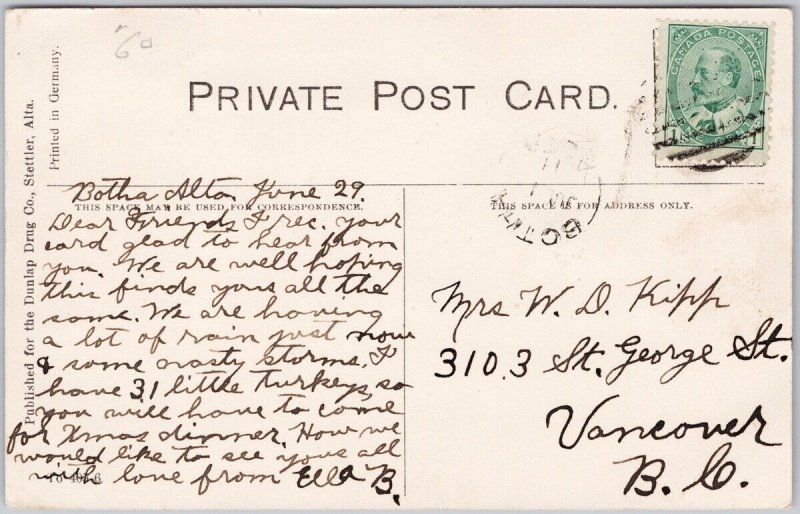 60
PRIVATE POST CARD.
CANADA POSTAGE
Published for the Dunlap Drug Co., Stettler, Alta.
Printed in Germany.
THIS SPACE MAY BE USED FOR CORRESPONDENCE.
THIS SPACE IS FOR ADDRESS ONLY.
Botha Alta, June 29.
Dear Friend, I rec. your
card glad to hear from
you. We are well hoping
this finds yous all the
same. We are having
a lot of rain just now
& some nasty storms. I
have 31 little turkeys, so
you will have to come
for Xmas dinner. How we
would like to see yous all
with love from Ella B.
Mrs W. D. Kipp
3103 St. George St.
Vancouver
B. C.